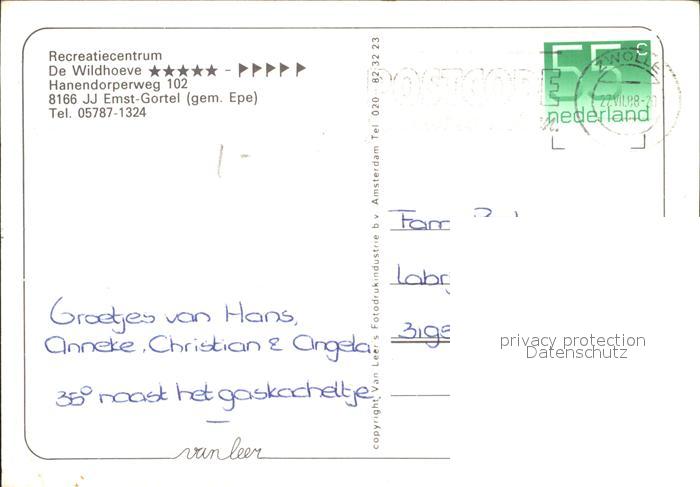 Recreatiecentrum
De Wildhoeve ★★★★★ -
Hanendorperweg 102
8166 JJ Emst-Gortel (gem. Epe)
Tel. 05787-1324
1-
Groetjes van Hans,
Anneke, Christian & Angela.
35° naast het gaskacheltje.
van leer
copyright Van Leer's Fotodrukindustrie b.v. Amsterdam Tel. 020 - 82 32 23
POSTCODE
ZWOLLE
55 c
nederland
Fam
privacy protection
Datenschutz